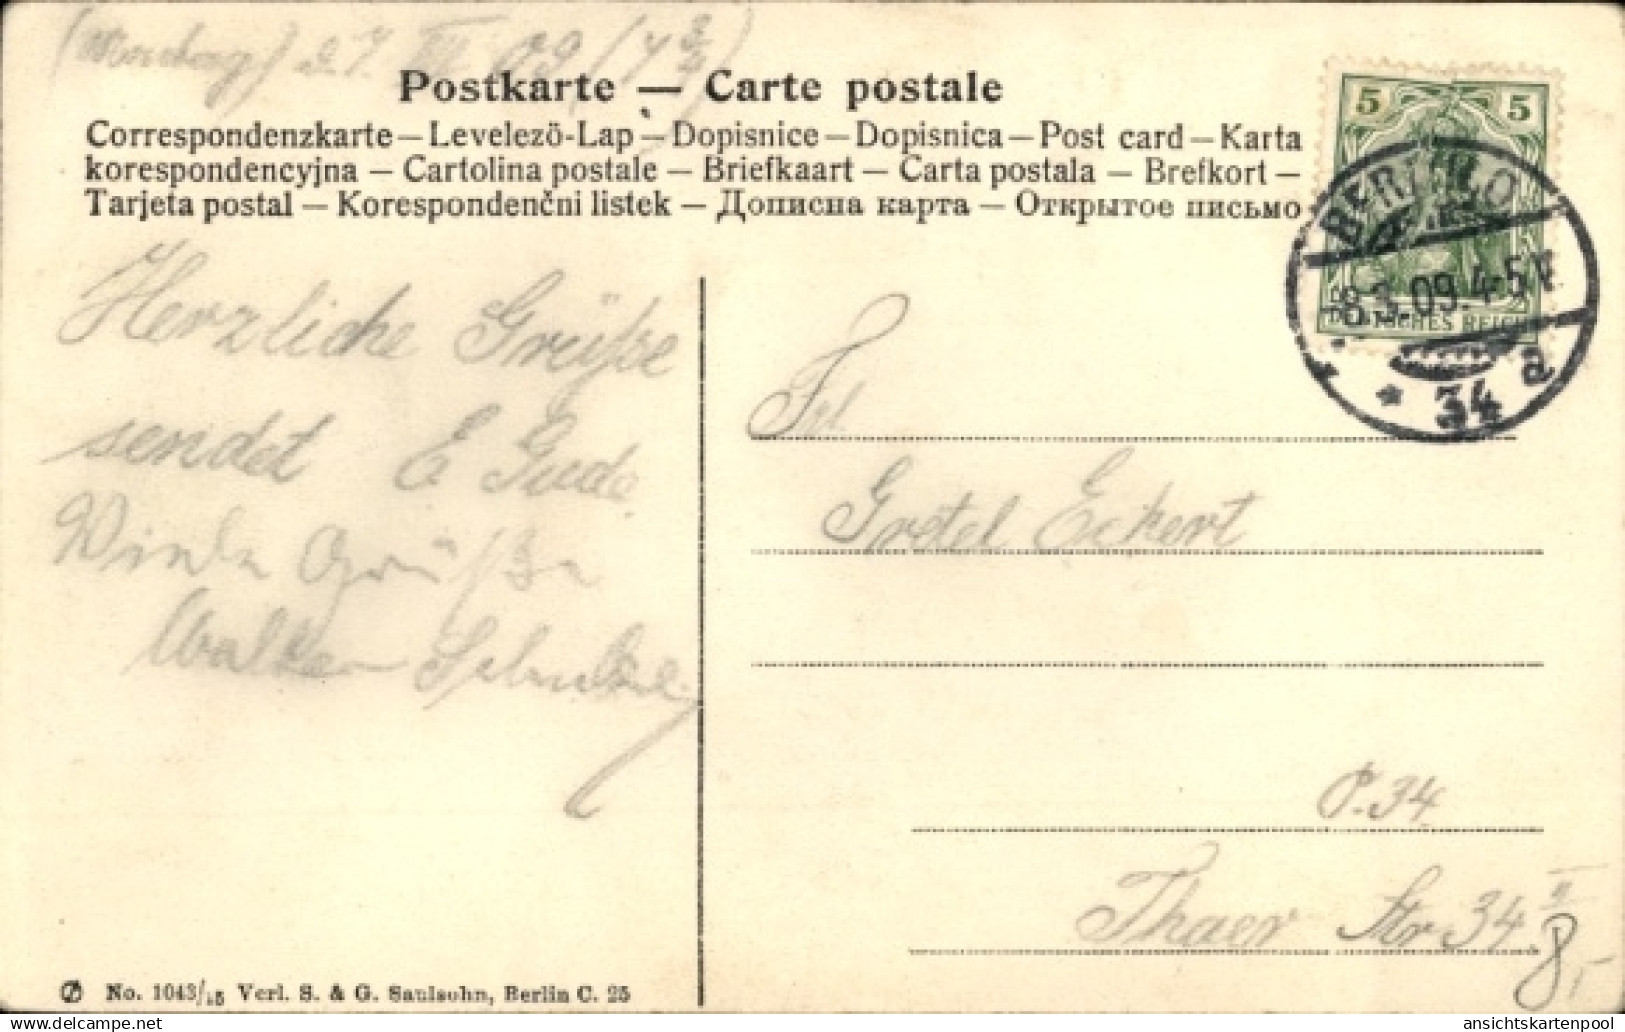 09
Postkarte — Carte postale
Correspondenzkarte — Levelezö-Lap — Dopisnice — Dopisnica — Post card — Karta
korespondencyjna — Cartolina postale — Briefkaart — Carta postala — Brefkort —
Tarjeta postal — Korespondenčni listek — Дописна карта — Открытое письмо
5 5
BERLIN O
8.3.09.4-5
DEUTSCHES REICH
* 34 a
Herzliche Grüße
sendet E
Grüße
Walter
Frl.
Gretel Eckert
O. 34
Thaer Str 34 II
8,-
No. 1043/15 Verl. S. & G. Saulsohn, Berlin C. 25
www.delcampe.net
ansichtskartenpool